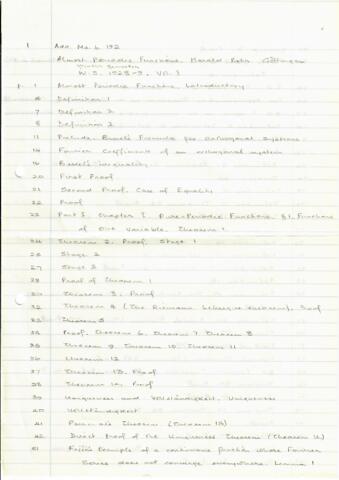 1 Add. Ms. b. 192
Almost Periodic Functions. Harald Bohr. Göttingen
Winter Semester
W.S. 1928-9. Vol. I
p. 1 Almost Periodic Functions. Introductory
6 Definition 1
7 Definition 2
8 Definition 3
11 Prelude. Bessel's Formula for orthogonal systems
14 Fourier Coefficients of an orthogonal system
16 Bessel's inequality
20 First Proof
21 Second Proof. Case of Equality
22 Proof
23 Part I. Chapter I. Pure-Periodic Functions. §1. Functions
of One Variable. Theorem 1
24 Theorem 2. Proof. Stage 1
26 Stage 2
27 Stage 3
28 Proof of Theorem 1
30 Theorem 3. Proof
32 Theorem 4 (The Riemann Lebesgue Theorem). Proof
33 Theorem 5
34 Proof. Theorem 6. Theorem 7. Theorem 8
35 Theorem 9. Theorem 10. Theorem 11
36 Theorem 12
37 Theorem 13. Proof
38 Theorem 14. Proof
39 Uniqueness and Vollständigkeit. Uniqueness
40 Vollständigkeit
41 Theorem (Theorem 15)
42 Direct Proof of the Uniqueness Theorem (Theorem 16)
51 Fejér's Example of a continuous function whose Fourier
Series does not converge everywhere. Lemma 1